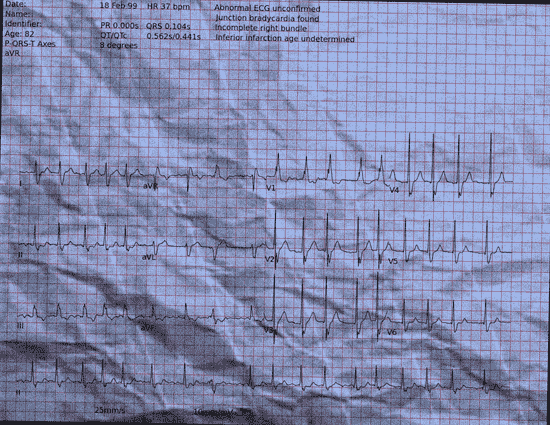 Date: 18 Feb 99 HR 37 bpm Abnormal ECG unconfirmed
Name: Junction bradycardia found
Identifier: PR 0.000s QRS 0.104s Incomplete right bundle
Age: 82 QT/QTc 0.562s/0.441s Inferior infarction age undetermined
P-QRS-T Axes 9 degrees
aVR
I aVR V1 V4
II aVL V2 V5
III aVF V3 V6
II
25mm/s